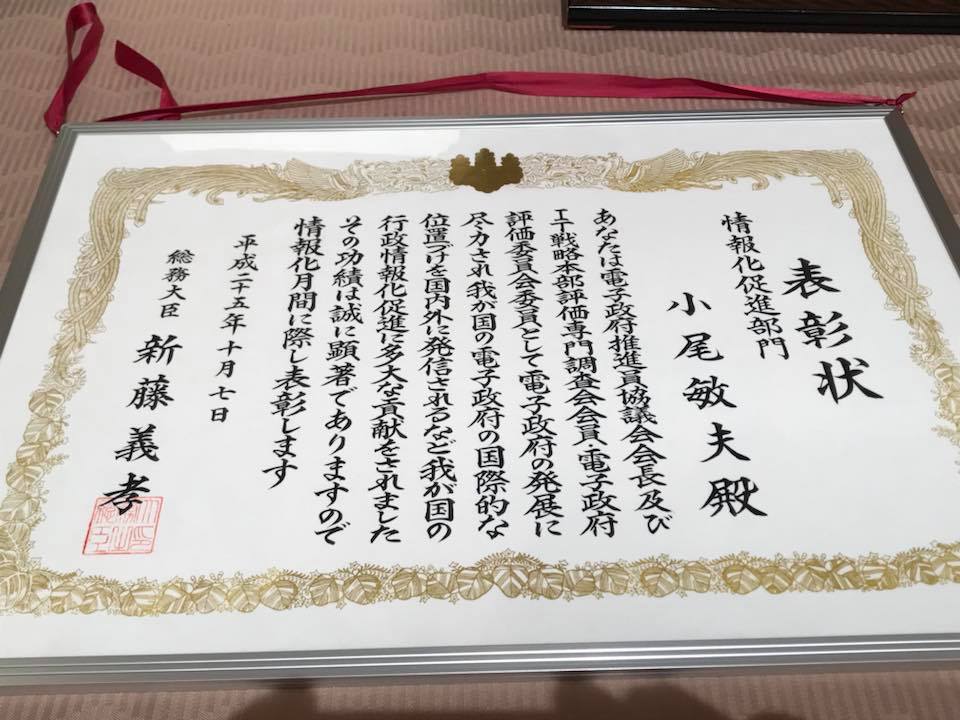 表彰状
情報化促進部門
小尾敏夫殿
あなたは電子政府推進員協議会会長及び
IT戦略本部評価専門調査会会員・電子政府
評価委員会委員として電子政府の発展に
尽力され我が国の電子政府の国際的な
位置づけを国内外に発信されるなど我が国の
行政情報化促進に多大な貢献をされました
その功績は誠に顕著でありますので
情報化月間に際し表彰します
平成二十五年十月七日
総務大臣
新藤義孝